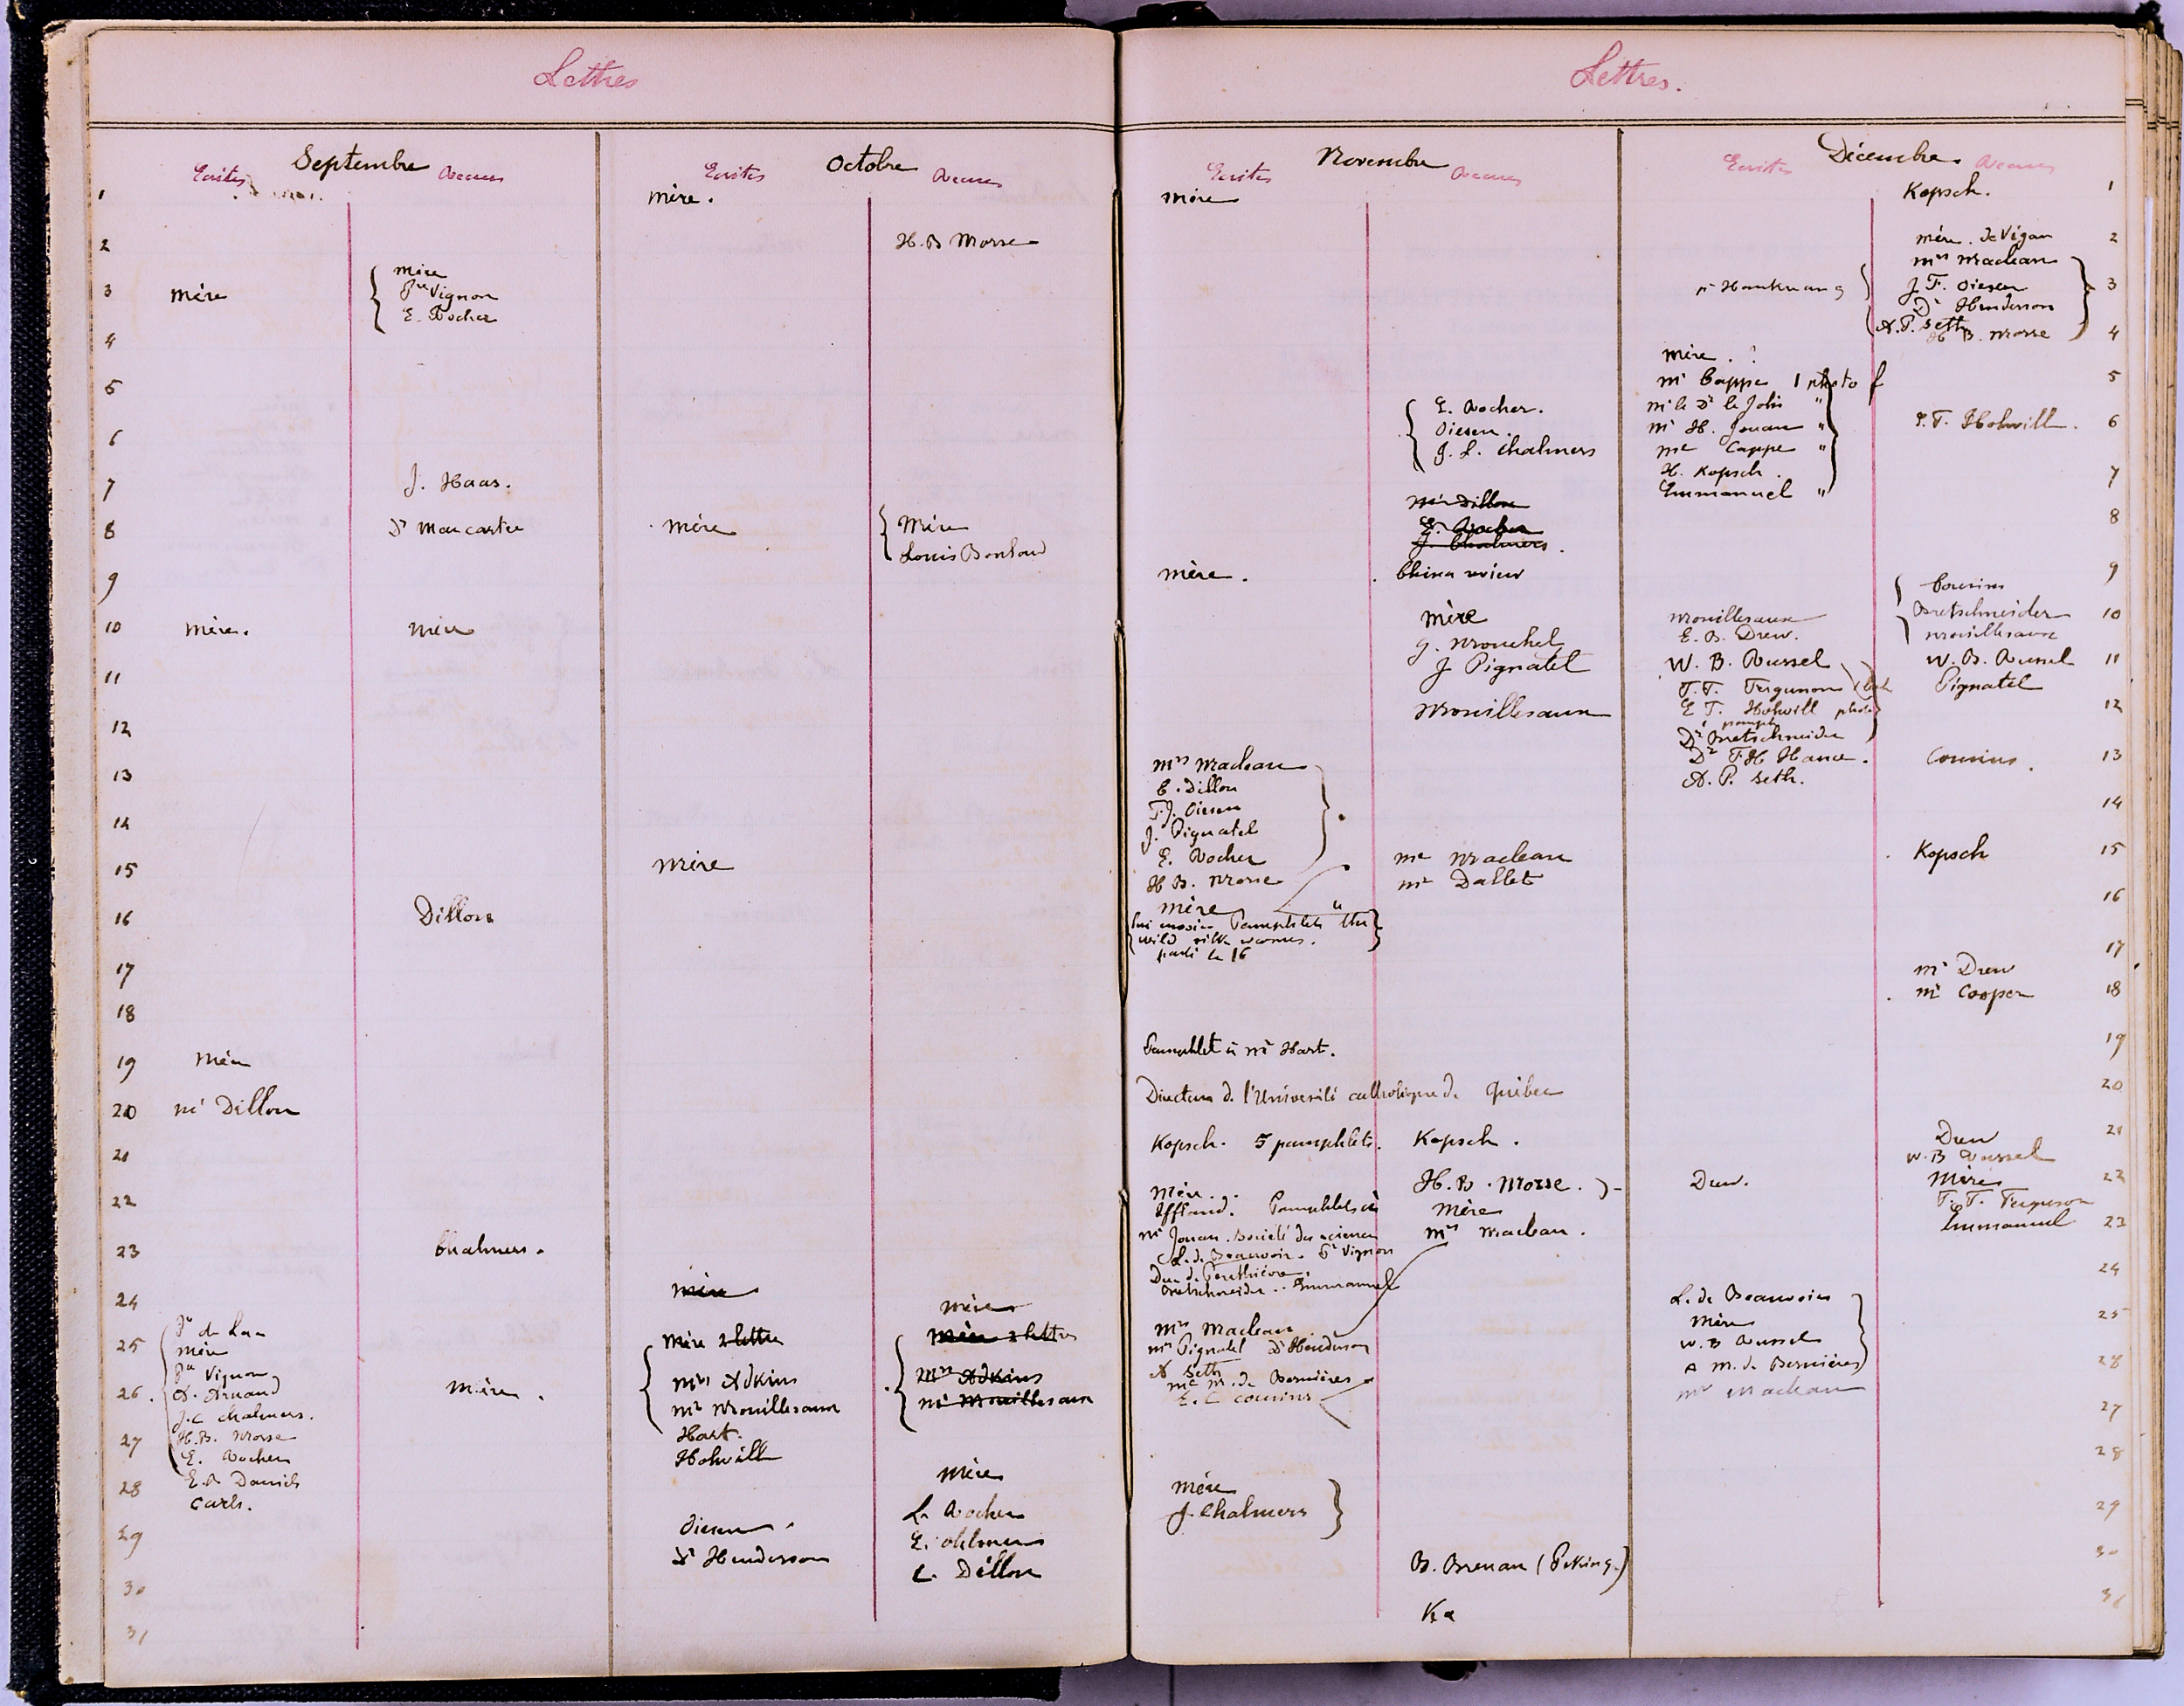 Lettres
Septembre
Ecrites
Recues
Octobre
Ecrites
Recues
1
mère.
2
H. B Morse
3
mère
mère
Vignon
E. Rocher
4
5
6
7
J. Haas.
8
Dr Macartee
mère
Mère
Louis
9
10
mère.
mère
11
12
13
14
15
mère
16
Dillon
17
18
19
mère
20
mr Dillon
21
22
23
Chalmers.
24
mère
mère
25
mère
Vignon
mère 2 lettres
mère 2 lettres
26.
A. Arnaud
J. C Chalmers.
mère.
mrs Adkins
mr Mouillesaux
mrs Adkins
mr Mouillesaux
27
H. B. Morse
E. Rocher
Hart.
Holwill
28
Carls.
mère
29
Oiesen
Dr Henderson
L. Rocher
E. Ohlmer
C. Dillon
30
31
Lettres.
Novembre
Ecrites
Recues
Décembre
Ecrites
Recues
mère
Kopsch.
1
mère. de Vigan
2
mrs Maclean
J. F. Oiesen
3
Dr Henderson
A. P. Seth
H B. Morse
4
mère. ?
mr Cappe 1 photo
5
E. Rocher.
Oiesen.
J. L. Chalmers
mr le Dr le Jolis "
mr H. Jouan "
me Cappe "
H. Kopsch.
Emmanuel "
E. T. Holwill.
6
7
mr Dillon
E. Rocher
J. Chalmers.
8
mère.
China review
Cousins
9
mère
G. Mouchel
J Pignatel
Mouillesaux
E. B. Drew.
Bretschneider
Mouillesaux
10
W. B. Russel
W. B. Russel
11
Mouillesaux
T. T. Ferguson
E T. Holwill photo
Pignatel
12
Dr Bretschneider
mrs Maclean
C. Dillon
T. J. Oiesen
J. Pignatel
E. Rocher
H B. Morse
Dr F H Hance.
A. P. Seth.
Cousins.
13
14
me Maclean
mr Dallet
Kopsch
15
mère
Pamphlets the
wild silk worms.
parti le 16
16
17
mr Drew
mr Cooper
18
Pamphlet à mr Hart.
19
Directeur de l'Université catholique de Québec
20
Kopsch. 5 pamphlets.
Kopsch.
Drew
W. B Russel
21
mère.
Pamphlets à
H. B. Morse.
mère
mrs Maclean.
Drew.
mère
T. T. Ferguson
Emmanuel
22
23
mr Jouan. Société des sciences
L. de Beauvoir. Vignon
Duc de Penthièvre.
Bretschneider. Emmanuel
24
mrs Maclean
mr Pignatel Dr Henderson
A Seth
me M. de Bernières
E. C Cousins
L. de Beauvoir
mère
W. B Russel
A M. de Bernières
mrs Maclean
25
28
27
28
mère
J. Chalmers
29
B. Brenan (Peking.)
30
31